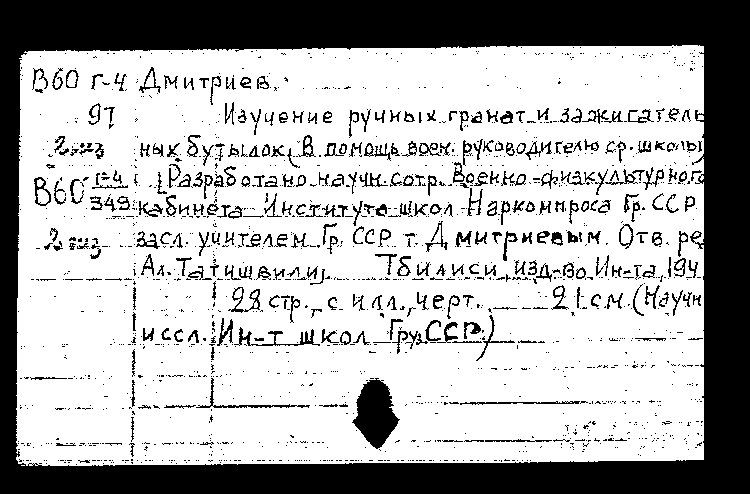 В60 г-4 Дмитриев.
97 Изучение ручных гранат и зажигатель
2 экз ных бутылок (В помощь воен. руководителю ср. школы)
В60 г-4/349 [Разработано научн. сотр. Военно-физкультурного
кабинета Института школ Наркомпроса Гр. ССР
2 экз засл. учителем Гр. ССР т. Дмитриевым. Отв. ре
Ал. Татишвили]. Тбилиси, изд-во Ин-та, 194
28 стр., с илл., черт. 21 см. (Научн
иссл. Ин-т школ Груз ССР.)